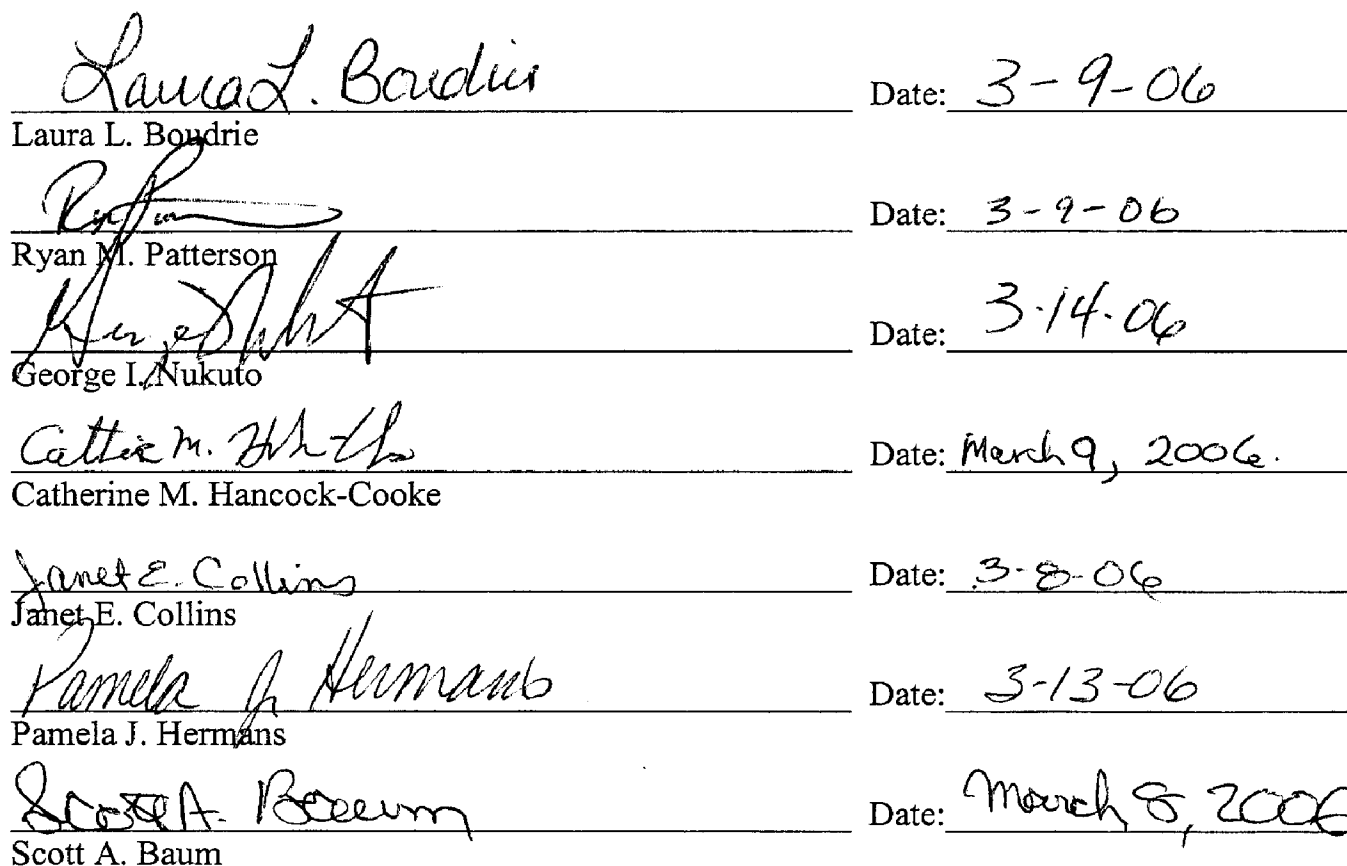 Laura L. Boudrie Date: 3-9-06
Laura L. Boudrie
Date: 3-9-06
Ryan M. Patterson
Date: 3-14-06
George I. Nukuto
Date: March 9, 2006.
Catherine M. Hancock-Cooke
Janet E. Collins Date: 3-8-06
Janet E. Collins
Pamela J Hermans Date: 3-13-06
Pamela J. Hermans
Scott A. Baum Date: March 8, 2006
Scott A. Baum